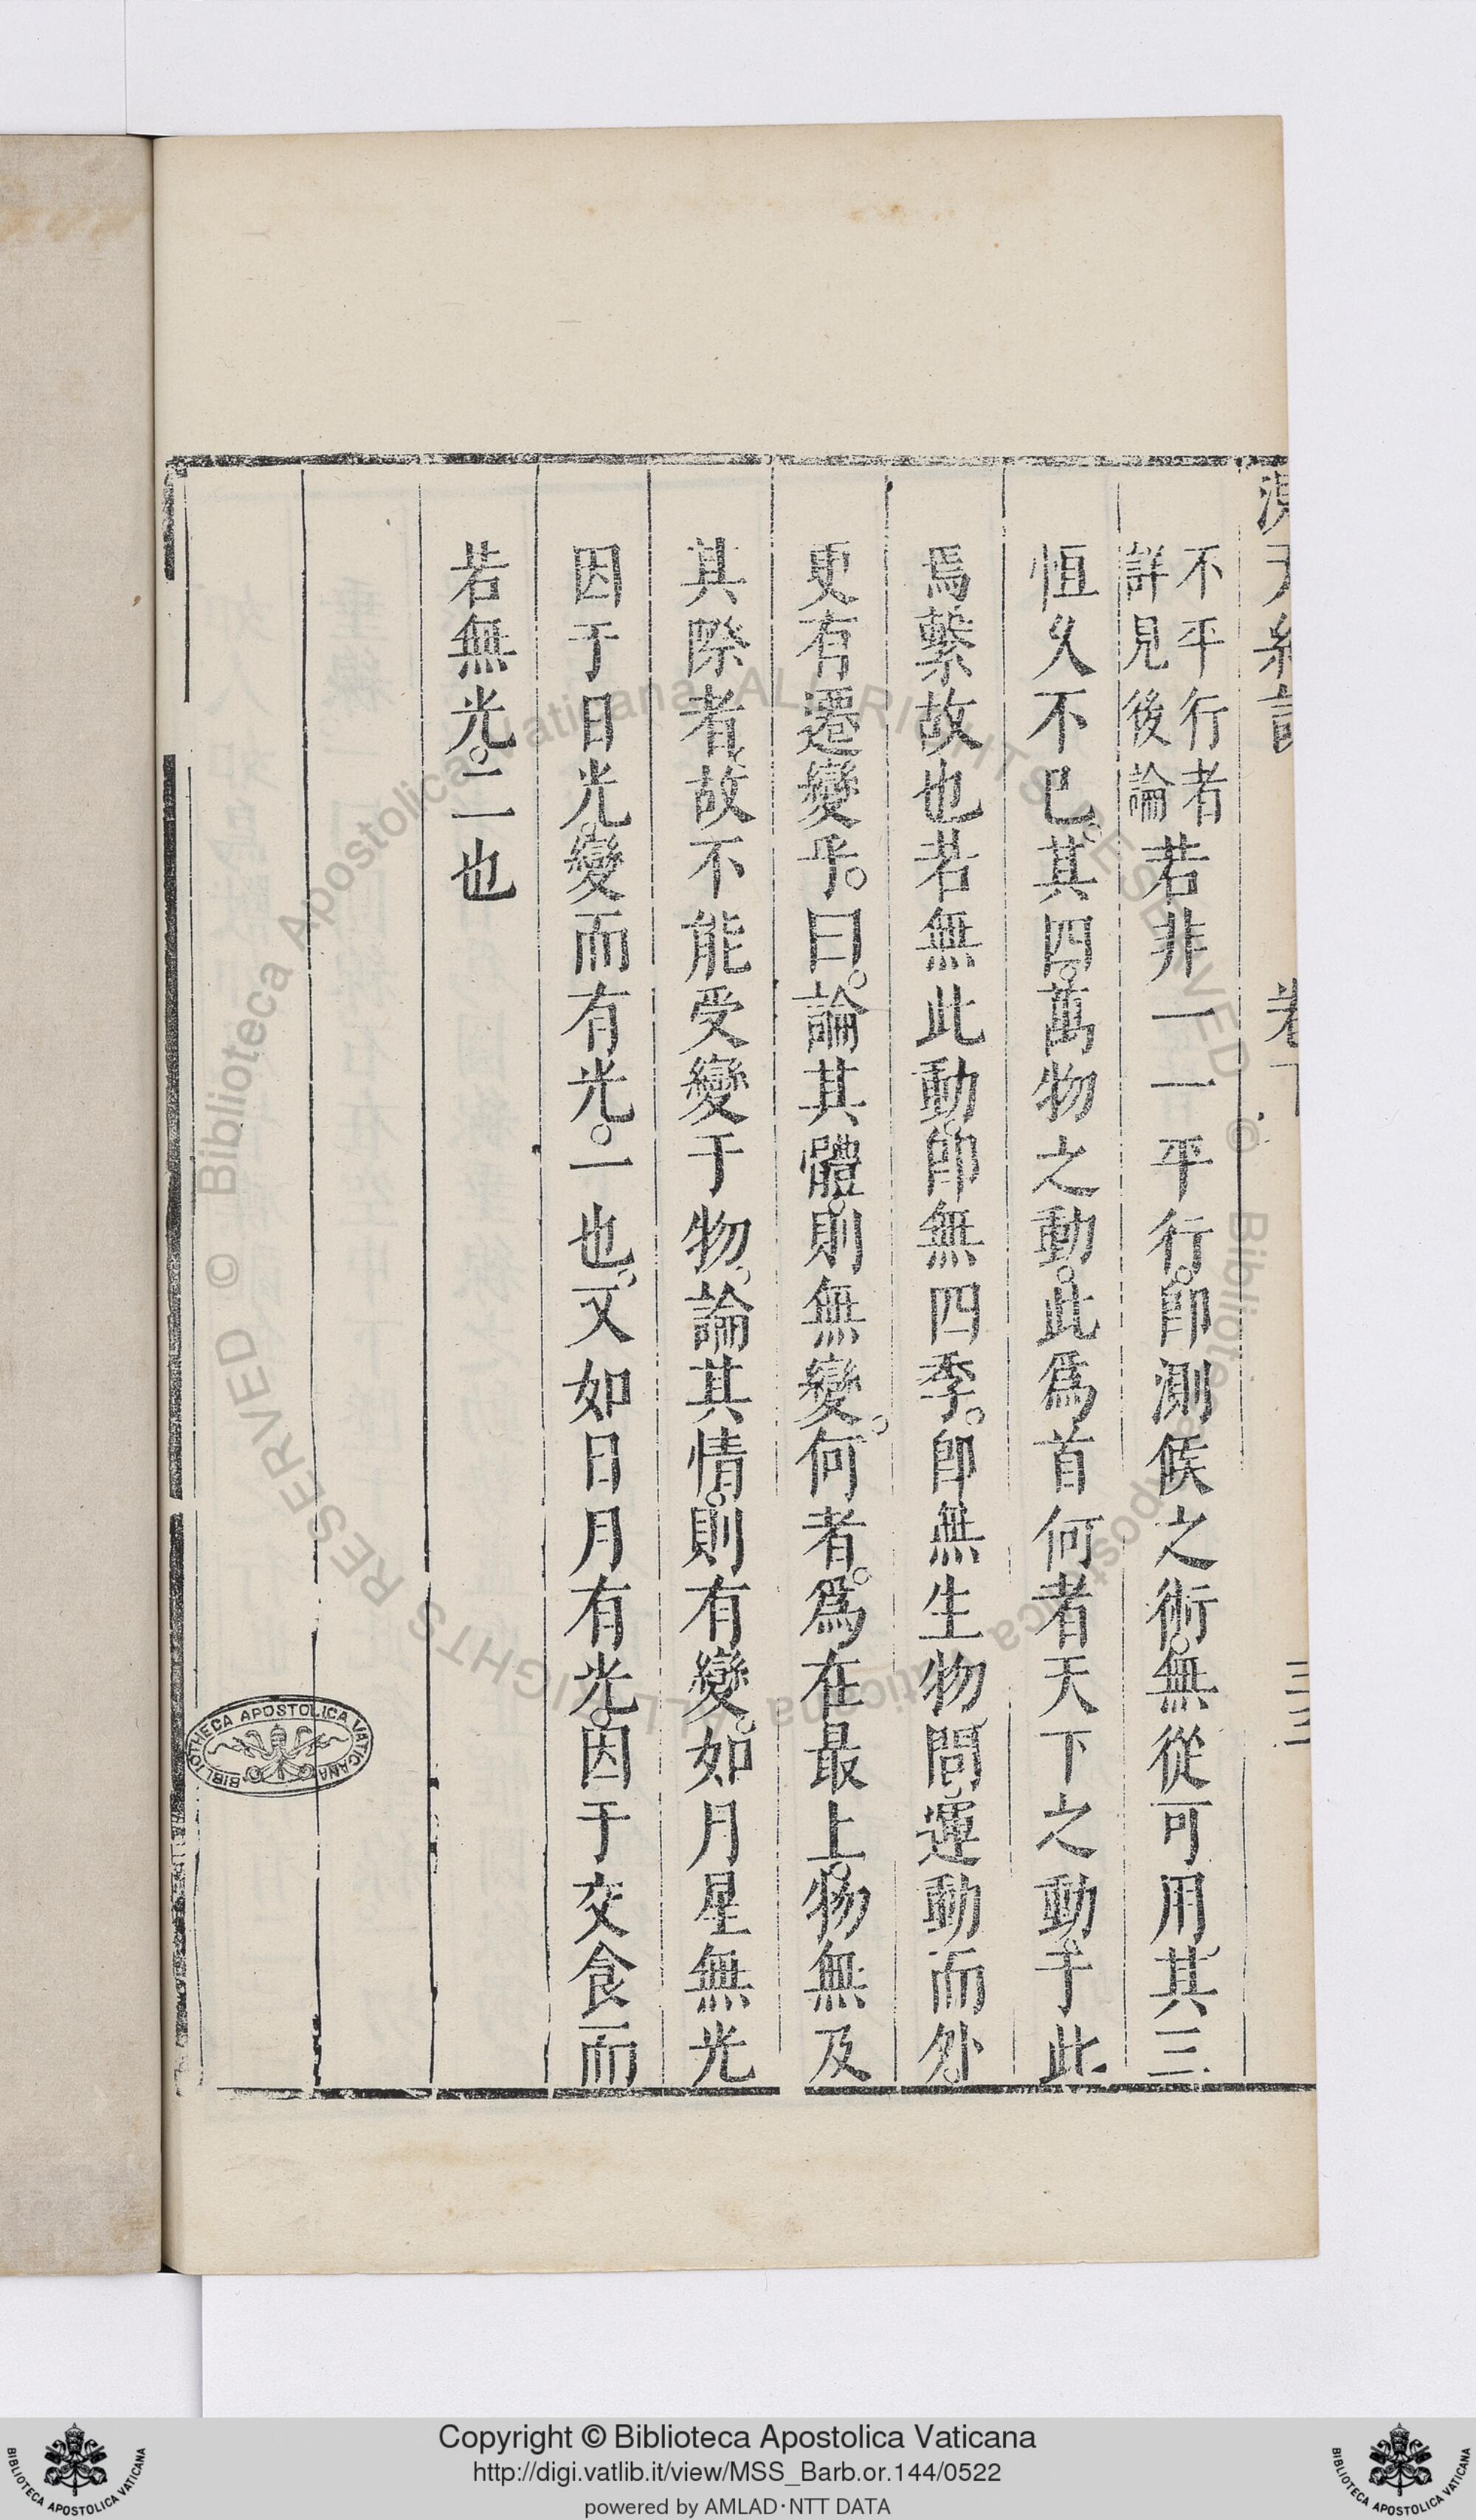 不平行者
詳見後論
若非一一平行。即測候之術。無從可用。其三
恒久不已。其四。萬物之動。此爲首何者天下之動。于此
焉繫故也若無此動。卽無四季。卽無生物問運動而外。
更有遷變乎。曰。論其體。則無變。何者。爲在最上。物無及
其際者。故不能受變于物。論其情。則有變。如月星無光
因于日光。變而有光。一也。又如日月有光。因于交食而
若無光。二也
Copyright © Biblioteca Apostolica Vaticana
http://digi.vatlib.it/view/MSS_Barb.or.144/0522
powered by AMLAD·NTT DATA
BIBLIOTECA APOSTOLICA VATICANA
BIBLIOTECA APOSTOLICA VATICANA
BIBLIOTHECA APOSTOLICA VATICANA
© Biblioteca Apostolica Vaticana ALL RIGHTS RESERVED © Biblioteca Apostolica Vaticana ALL RIGHTS RESERVED